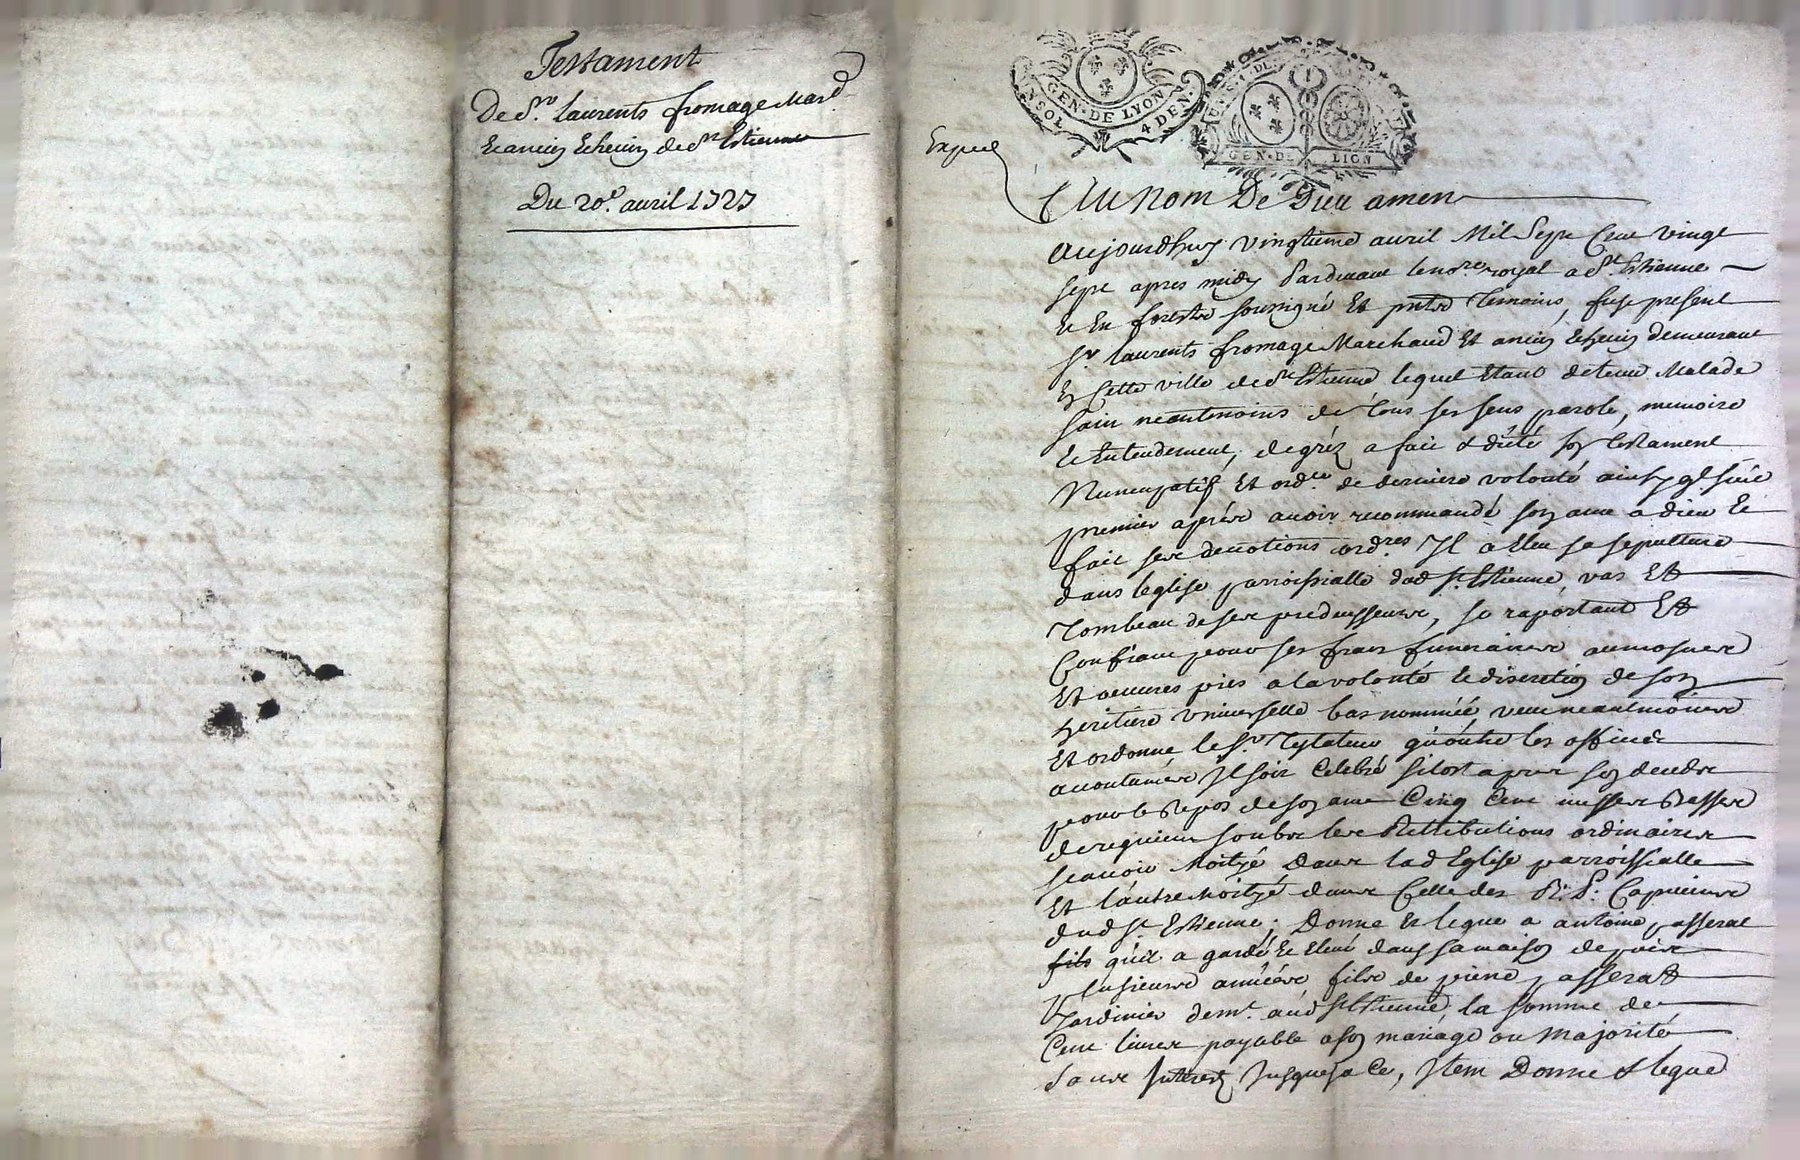 Testament
De Sr. laurents fromage Mard
Et ancien Echevin de St Estienne
Du 20e. avril 1727
GEN·DE LYON
UN SOL 4 DEN·
GEN·DE LION
Expedié
Au Nom De Dieu amen
Aujourdhuy vingtieme avril Mil Sept Cent vingt
sept apres midy Pardevant le nore. royal a St. Estienne
Et En forestz soussigné Et pntz Temoins, fust present
Sr. laurents fromage Marchand Et ancien Echevin demeurant
En Cette ville de St Estienne lequel Etant detenu Malade
sain neantmoins de Tous ses sens parole, memoire
Et Entendement, de gréz a fait & dicté son Testament
Nuncupatif Et ordce. de derniere volonté ainsy ql suit
premier aprés avoir recommandé son ame a dieu Et
fait ses devotions ordres Il a Eleu sa sepulture
dans leglise parroissialle dud St. Estienne vas Et
Tombeau de ses predecesseurs, se raportant Et
Confiant pour ses frais funeraires aumosnes
Et oeuvres pies a la volonté Et discretion de son
heritiere vniverselle bas nommée, veut neantmoins
Et ordonne le Sr. Testateur qu'outre les offices
acoutumés Il soit Celebré sitost apres son decedz
pour le Repos de son ame Cinq Cent messes Basses
de requiem soubs les Rettibutions ordinaires
scavoir Moityé Dans lad Eglise parroissialle
Et l'autre Moityé dans Celle des R. P. Capucins
dud St Estienne; Donne Et legue a antoine passerat
fils qu'il a gardé Et Elevé dans sa maison depuis
plusieurs années, fils de pierre passerat
Jardinier demt. aud St Estienne, la somme de
Cent livres payable a son mariage ou Majorité
sans Interest Jusques a Ce, Item Donne & legue